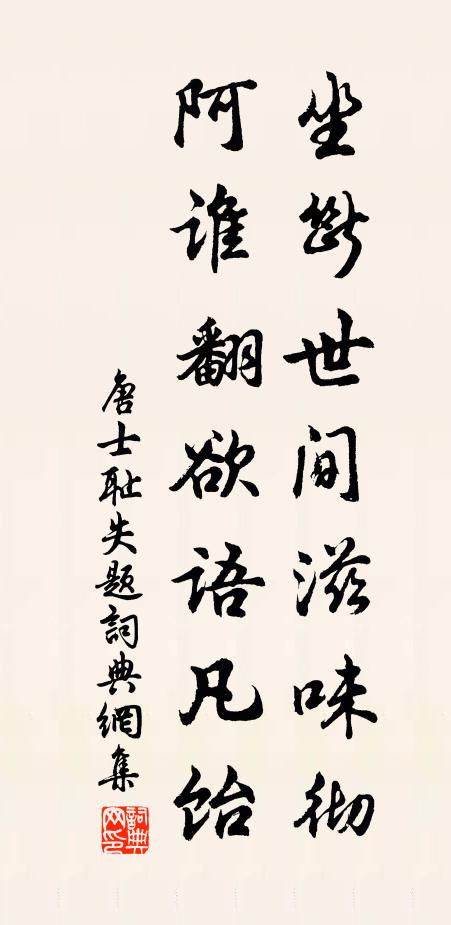 坐断世间滋味彻
阿谁翻欲语凡饴
唐士耻失题词典網集
詞典网印